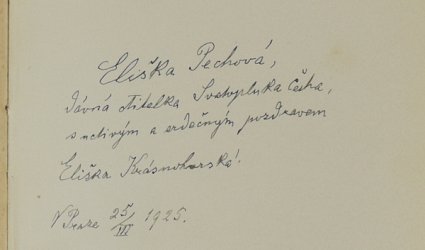 Eliška Pechová,
dávná ctitelka Svatopluka Čecha,
s uctivým a srdečným pozdravem
Elišce Krásnohorské!
V Praze 25/III 1925.